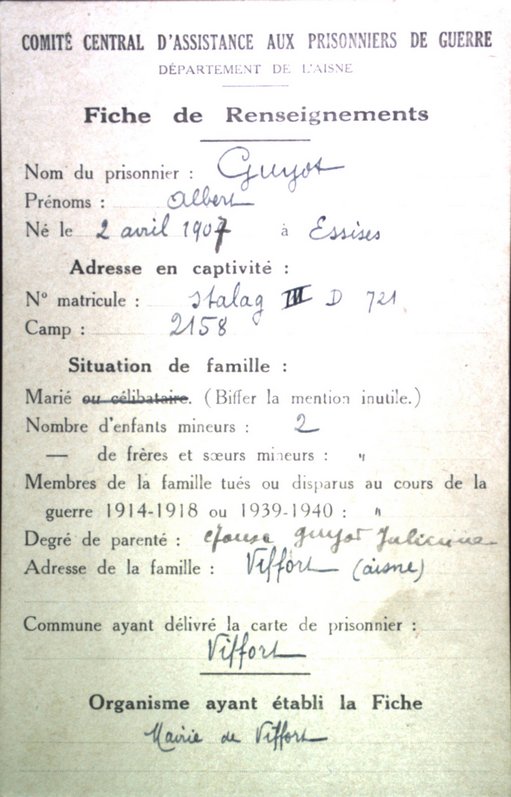 COMITÉ CENTRAL D'ASSISTANCE AUX PRISONNIERS DE GUERRE
DÉPARTEMENT DE L'AISNE
Fiche de Renseignements
Nom du prisonnier : Guyot
Prénoms : Albert
Né le 2 avril 1907 à Essises
Adresse en captivité :
N° matricule : Stalag III D 721
Camp : 2158
Situation de famille :
Marié ou célibataire. (Biffer la mention inutile.)
Nombre d'enfants mineurs : 2
— de frères et sœurs mineurs : "
Membres de la famille tués ou disparus au cours de la
guerre 1914-1918 ou 1939-1940 : "
Degré de parenté : épouse Guyot Julienne
Adresse de la famille : Viffort (aisne)
Commune ayant délivré la carte de prisonnier :
Viffort
Organisme ayant établi la Fiche
Mairie de Viffort